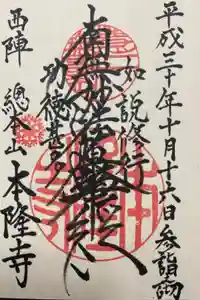 平成三十年十月十六日参詣砌
如説修行
南無妙法蓮華経
功徳甚多
西陣 総本山 本隆寺